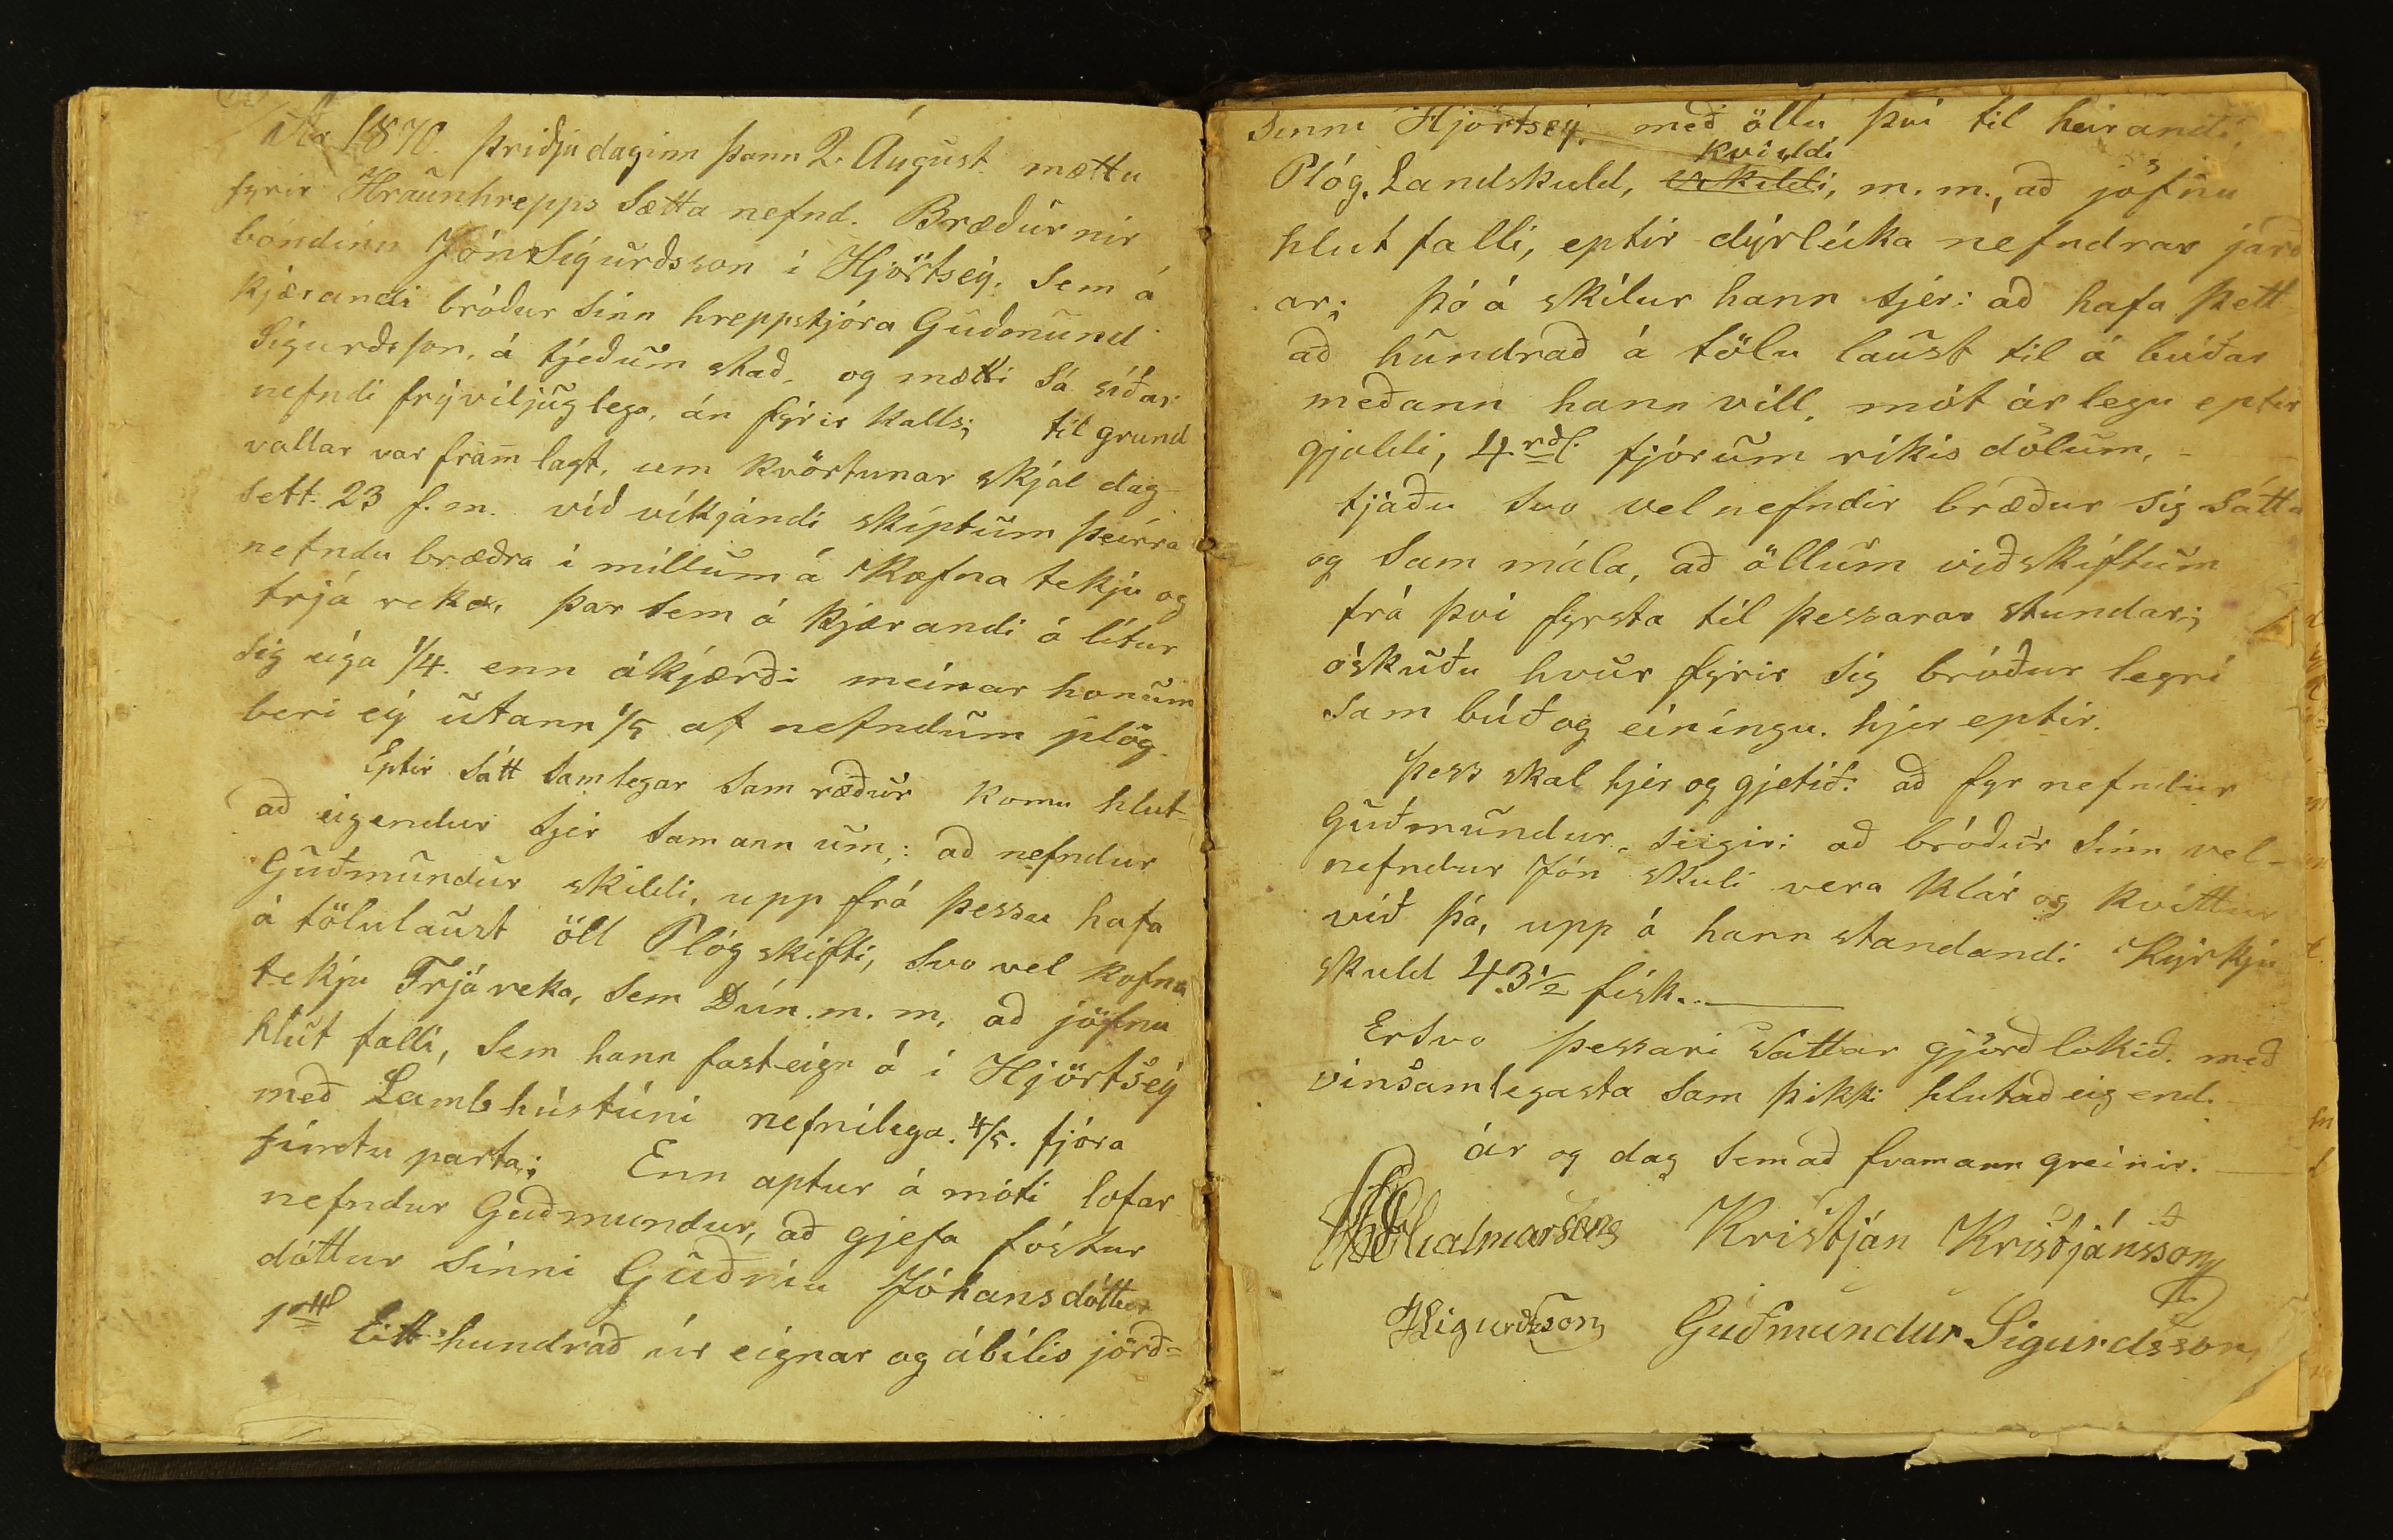 Ár 1870. þriðjudaginn þann 2. Águst. mættu
fyrir Hraunhrepps Sætta nefnd. Bræðurnir
bóndinn Jón Sigurðsson í Hjörtsey. Sem á
kjærandi bróður Sinn hreppstjóra Guðmund
Sigurðsson, á tjeðum stað, og mætti Sá síðar
nefndi frýviljuglega, án fyrir kalls; til grund
vallar var framlagt, um kvörtunar skjal dag-
sett. 23 f. m. við víkjandi skiptum þeirra
nefndu bræðra í millum á Kofna tekju og
trjá reka, þar Sem á kjærandi á lítur
Sig eiga 1/4. enn ákjærði meinar honum
beri ey utann 1/5 af nefndum plóg.
Eptir Sátt Samlegar Sam ræður komu hlut-
að eigendur Sjer Samann um,: að nefndur
Guðmundur skildi, upp frá þessu hafa
á tölulaust öll Plóg skifti, Svo vel kofna
tekju Trjáreka, Sem Dún. m. m. að jöfnu
hlut falli, Sem hann fasteign á í Hjörtsey
með Lambhústúni nefnilega. 4/5. fjóra
fimtu parta; Enn aptur á móti lofar
nefndur Guðmundur, að gjefa fóstur
dóttur Sinni Guðríu Jóhansdóttur
Eitt hundrað úr eignar og ábílis jörð=
Sinni Hjörtsey, með öllu því til heirandi,
kvíildi
Plóg, Landskuld, m. m., að jöfnu
hlut falli, eptir dýrleika nefndrar jarð
ar; þó á skilur hann Sjer: að hafa þett
að hundrað á tölu laust til á búðar
meðann hann vill, mót árlegu eptir
gjaldi, 4 rdl. fjórum ríkis dölum, -
tjáðu Svo velnefndir bræður Sig Sátta
og Sam mála, að öllum viðskiftum
frá því fyrsta til þessarar stundar;
óskuðu hvur fyrir Sig bróður legri
Sam búð og einingu. hjer eptir.
Þess skal hjer og gjetið: að fyr nefndur
Guðmundur, Seigir: að bróður Sinn vel-
nefndur Jón skuli vera klár og kvittur
við þá, upp á hann standandi Kyrkju
skuld 43 1/2 fisk.
ErSvo þessari Sáttar gjörð lokið. með
vinsamlegasta Sam þikki hlutaðeigend.
ár og dag Semað framann greinir.
Kristján Kristjánsson
JSigurðsson Guðmundur Sigurdsson